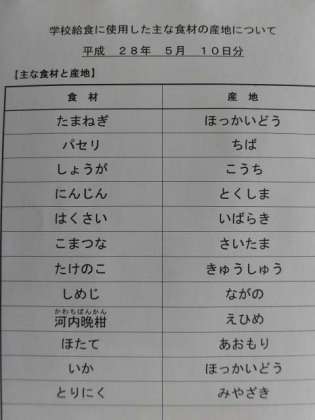 学校給食に使用した主な食材の産地について
平成　２８年　５月　１０日分
【主な食材と産地】
食　材　産　地
たまねぎ　ほっかいどう
パセリ　ちば
しょうが　こうち
にんじん　とくしま
はくさい　いばらき
こまつな　さいたま
たけのこ　きゅうしゅう
しめじ　ながの
かわちばんかん
河内晩柑　えひめ
ほたて　あおもり
いか　ほっかいどう
とりにく　みやざき